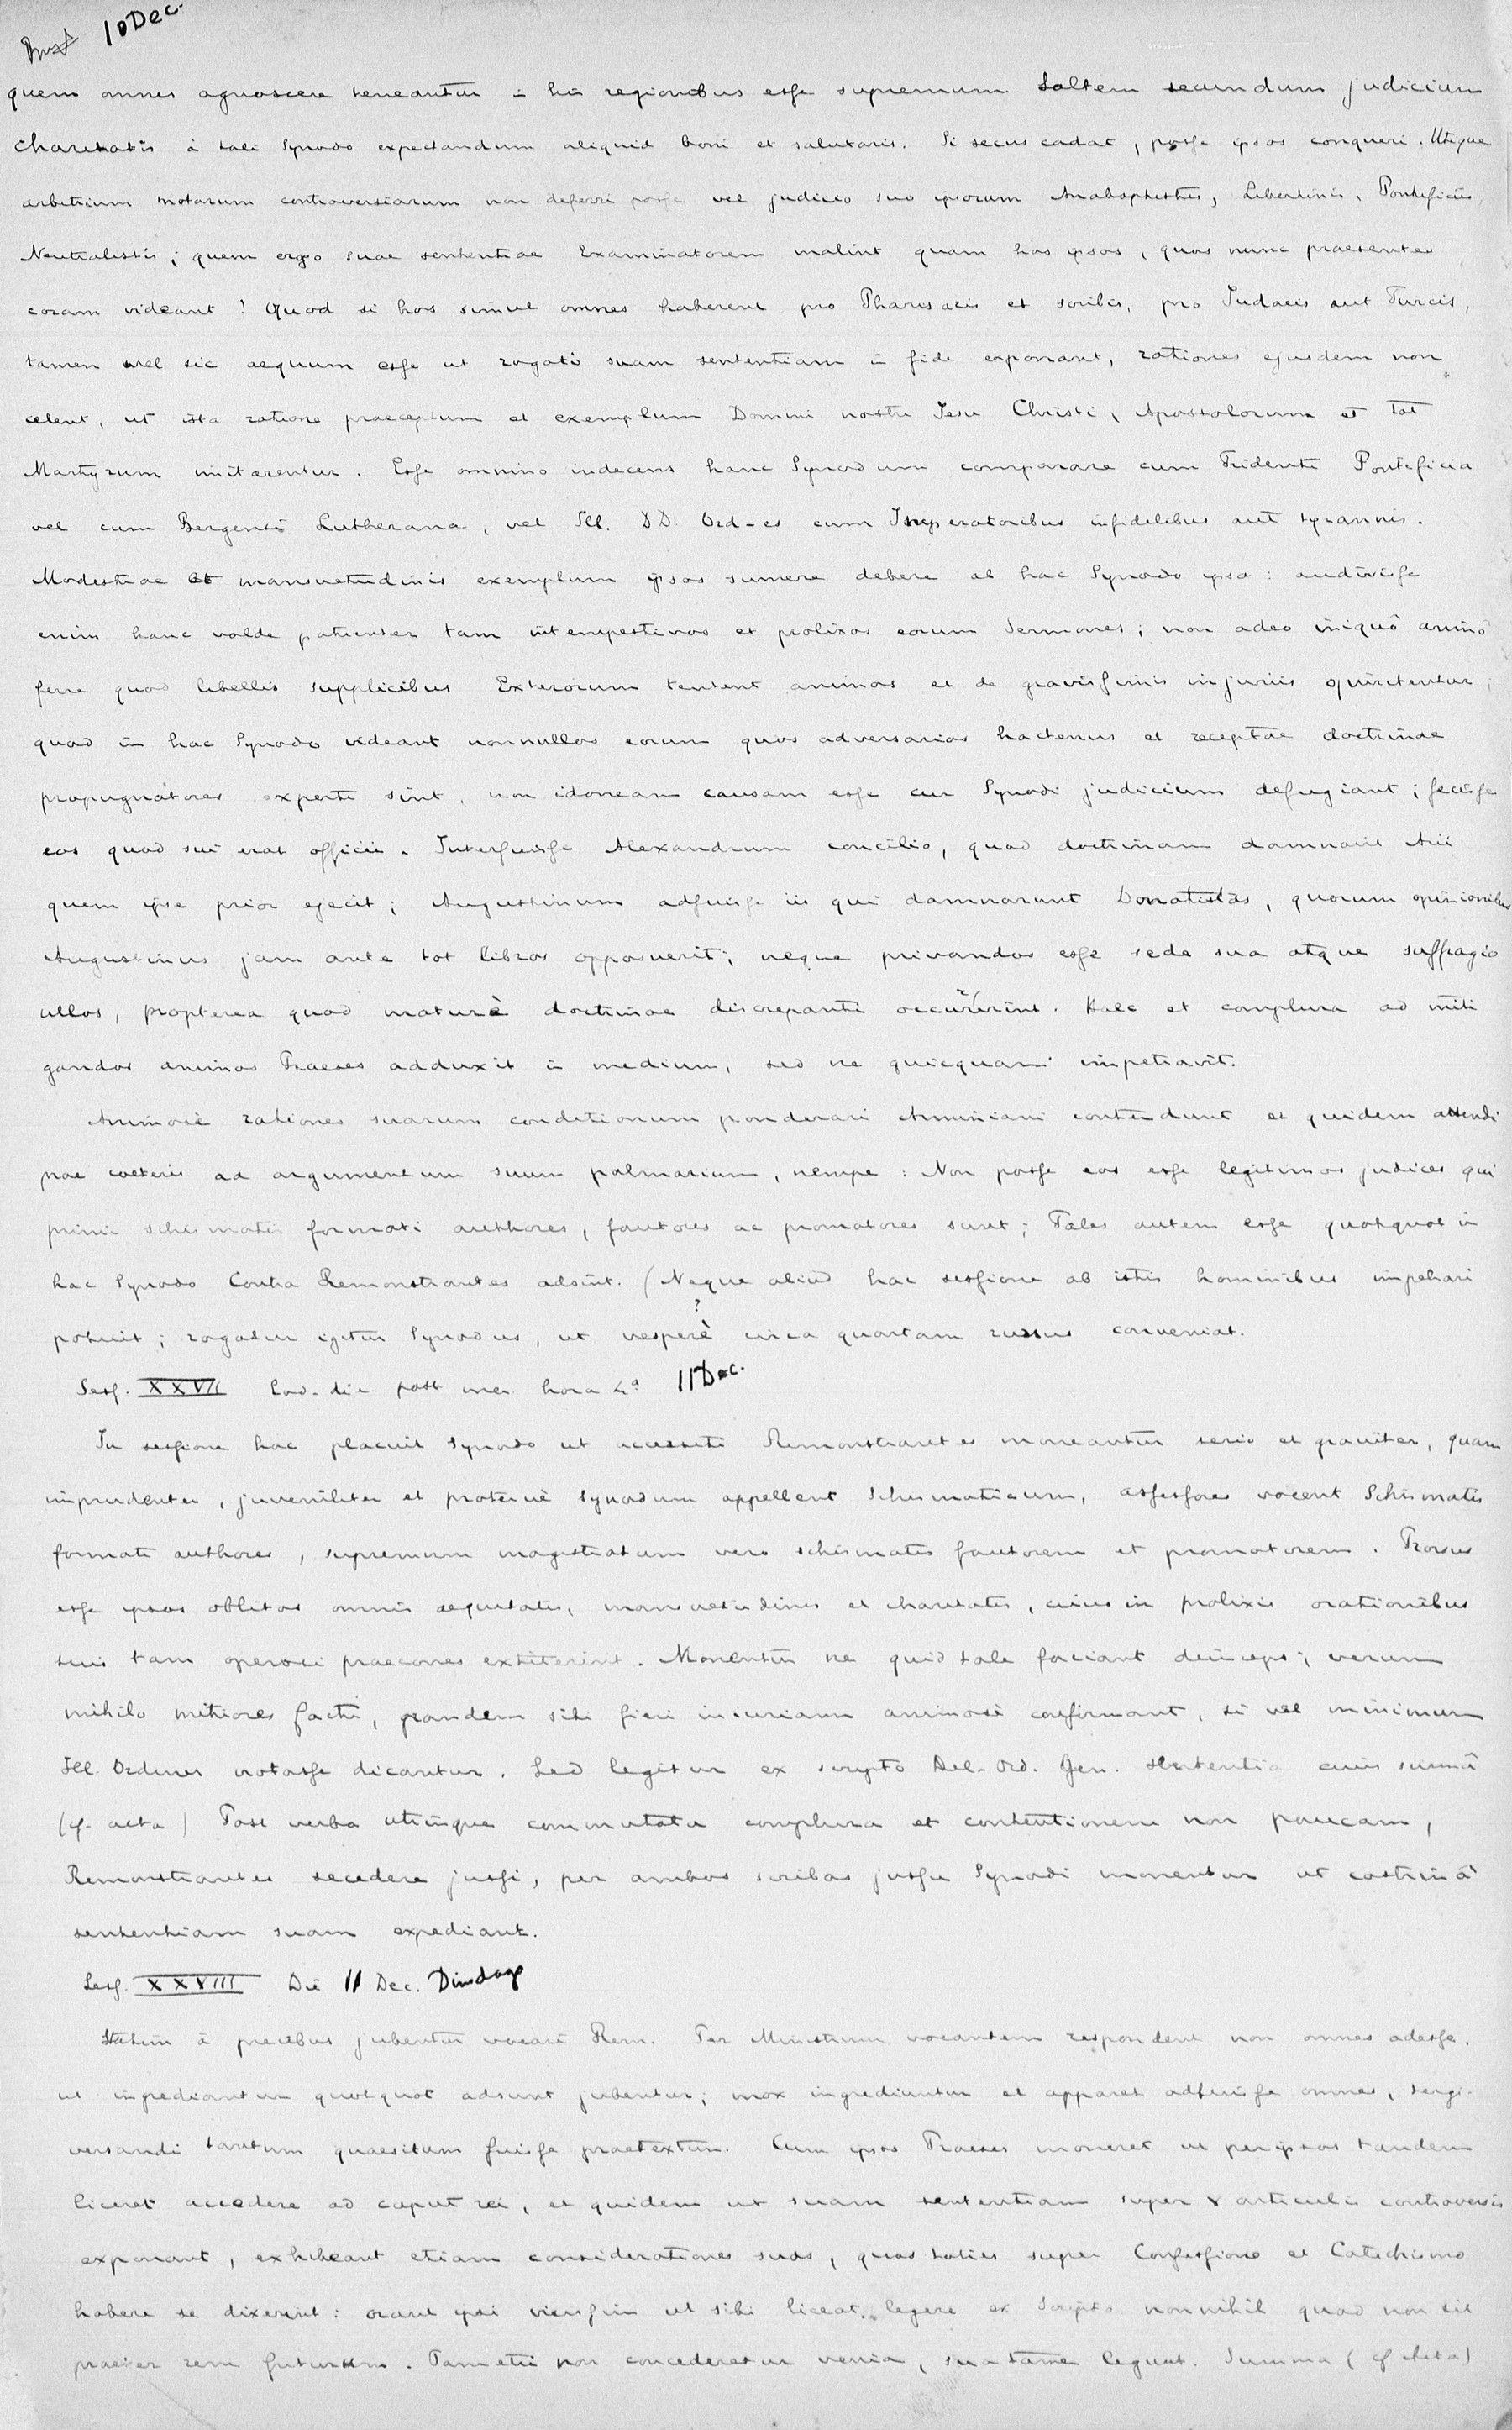 10 Dec.
quem omnes agnoscere teneantur in his regionibus esse supremum. Saltem secundum judicium
charitatis à tali Synodo expectandum aliquid boni et salutaris. Si secus cadat, posse ipsos conqueri. Utique
arbitrium motarum controversiarum non deferri posse vel judicio suo ipsorum Anabaptistis, Libertinis, Pontificiis,
Neutralistis; quem ergo suae sententiae Examinatorem malint quam hos ipsos, quos nunc praesentes
coram videant! Quod si hos simul omnes haberent pro Pharisaeis et scribis, pro Judaeis aut Turcis,
tamen vel sic aequum esse ut rogati suam sententiam in fide exponant, rationes ejusdem non
celent, ut ista ratione praeceptum et exemplum Domini nostri Jesu Christi, Apostolorum et tot
Martyrum imitarentur. Esse omnino indecens hanc Synodum comparare cum Tridenti Pontificia
vel cum Bergensi Lutherana, vel Ill. DD. Ord-es cum Imperatoribus infidelibus aut tyrannis.
Modestiae et mansuetudinis exemplum ipsos sumere debere ab hac Synodo ipsa: audivisse
enim hanc valde patienter tam intempestivos et prolixos eorum Sermones; non adeo iniquô animô
ferre quod libellis supplicibus Exterorum tentent animos et de gravissimis injuriis
quod in hac Synodo videant nonnullos eorum quos adversarios hactenus et receptae doctrinae
propugnatores experti sint, non idoneam causam esse cur Synodi judicium defugiant; fecisse
eos quod sui erat officii. Interfuisse Alexandrum concilio, quod doctrinam damnavit Arii
quem ipse prior ejecit; Augustinum adfuisse iis qui damnarunt Donatistas, quorum opinionibus
Augustinus jam ante tot libros opposuerit; neque privandos esse sede sua atque suffragio
ullos, propterea quod maturè doctrinae discrepanti occurrerint. Haec et complura ad miti
gandos animos Praeses adduxit in medium, sed ne quicquam impetravit.
Animosè rationes suarum conditionum ponderari Arminiani contendunt et quidem attendi
prae caeteris ad argumentum suum palmarium, nempe: Non posse eos esse legitimos judices qui
primi schismatis formati authores, fautores ac promotores sunt; Tales autem esse quotquot in
hac Synodo Contra Remonstrantes adsint. (Neque aliud hac sessione ab istis hominibus impetrari
?
potuit; rogatur igitur Synodus, ut vesperè circa quartam rursus conveniat.
Sess. XXVII Eod. die post mer. hora 4ª 11 Dec.
In sessione hac placuit Synodo ut accersiti Remonstrantes moneantur serio et graviter, quam
imprudenter, juveniliter et protervè Synodum appellent Schismaticum, assessores vocent Schismatis
formati authores, supremum magistratum vero schismatis fautorem et promotorem. Prorsus
esse ipsos oblitos omnis aequitatis, mansuetudinis et charitatis, cuius in prolixis orationibus
suis tam operosi praecones extiterint. Monentur ne quid tale faciant deinceps; verum
nihilo mitiores facti, grandem sibi fieri iniuriam animosè confirmant, si vel minimum
Ill. Ordines notasse dicantur. Sed legitur ex scripto Del. Ord. Gen. sententia cuius summâ
(cf. acta) Post verba utrinque commutata complura et contentionem non paucam,
Remonstrantes secedere jussi, per ambos scribas jussu Synodi monentur ut
sententiam suam expediant.
Sess. XXVIII Die 11 Dec. Dinsdag
Statim à precibus jubentur vocari Rem. Per Ministrum vocantem respondent non omnes adesse.
ut ingrediantur quotquot adsunt jubentur; mox ingrediuntur et apparet adfuisse omnes, tergi-
versandi tantum quaesitum fuisse praetextum. Cum ipsos Praeses moneret ut per ipsos tandem
liceret accedere ad caput rei, et quidem ut suam sententiam super v articulis controversis
exponant, exhibeant etiam considerationes suas, quas toties super Confessione et Catechismo
habere se dixerint: orant ipsi vicissim ut sibi liceat legere ex Scripto nonnihil quod non sit
praeter rem futurum. Tametsi non concederetur venia, sua tamen legunt. Summa (cf Acta)